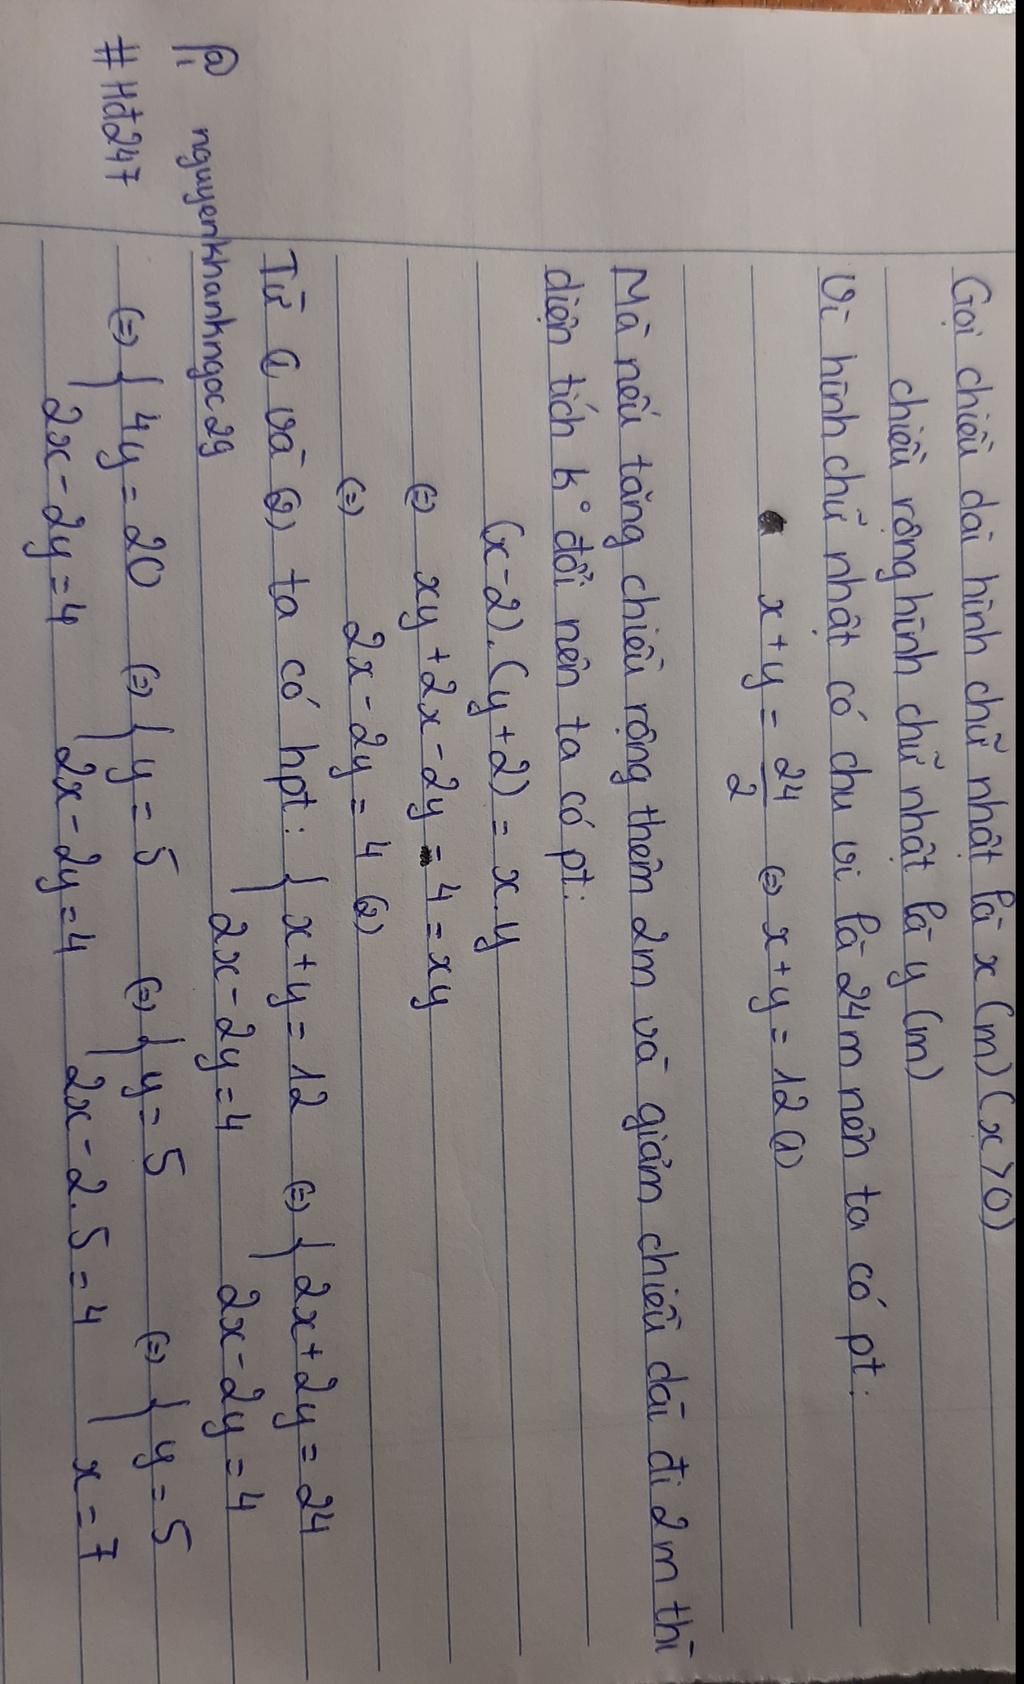 Gọi chiều dài hình chữ nhật là x (m) (x>0)
chiều rộng hình chữ nhật là y (m)
Vì hình chữ nhật có chu vi là 24m nên ta có pt:
x+y = 24/2 (=) x+y = 12 (1)
Mà nếu tăng chiều rộng thêm 2m và giảm chiều dài đi 2m thì
diện tích k° đổi nên ta có pt:
(x-2).(y+2) = x.y
(=) xy + 2x - 2y - 4 = xy
(=) 2x - 2y = 4 (2)
Từ (1 và (2) ta có hpt: { x+y = 12 (=) { 2x + 2y = 24
2x - 2y = 4 2x - 2y = 4
(=) { 4y = 20 (=) { y = 5 (=) { y = 5 (=) { y = 5
2x - 2y = 4 2x - 2y = 4 2x - 2.5 = 4 x = 7
nguyenkhankngoc2g
#Hđ247